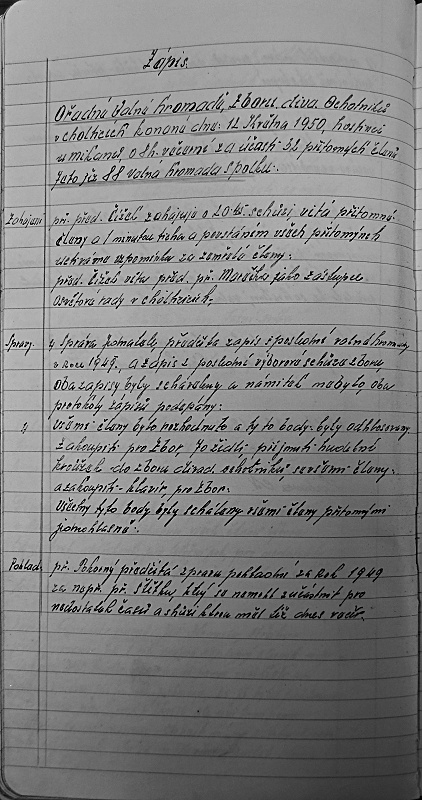 Zápis.
Řádná Valná hromada, Sboru diva. Ochotníků
v Cholticích konaná dne: 14 Ledna 1950, hostinci
u Mikanů, o 8 h. večerní za účasti 32 přítomných členů
jato již 88 valna hromada spolku.
Zahájení př. před. Čížek zahájuje o 20.45 schůzi vitá přítomné
členy a 1 minutou ticha a povstáním všech přítomných
uctěna vzpomínka za zemřelé členy.
před. Čížek víta před. př. Marečka jako zástupce
Osvětove rady v Cholticích.
Správy. 1, Správa jednatele, předčíta zapis z poslední valné hromady
v roce 1949, a zápis z poslední výborové schůze sboru,
oba zápisy byly schváleny a námitek nebylo, oba
protokoly zápisů podepsány.
Všemi členy bylo rozhodnuto a ty to body byly odhlasovany.
zakoupiti pro sbor 70 židlí, přijmuti hudební
kroužek do sboru divad. ochotníků, se všemi členy.
a zakoupiti klavír, pro sbor.
Všechny tyto body byly schálany všemi členy přítomnými
jednohlasně.
Poklad. př. Pokorný předčítá zpravu pokladní za rok 1949
za nepř. př. Štítku, který se nemohl zúčastnit pro
nedostatek času a skúzi kterou měl též dnes večer.